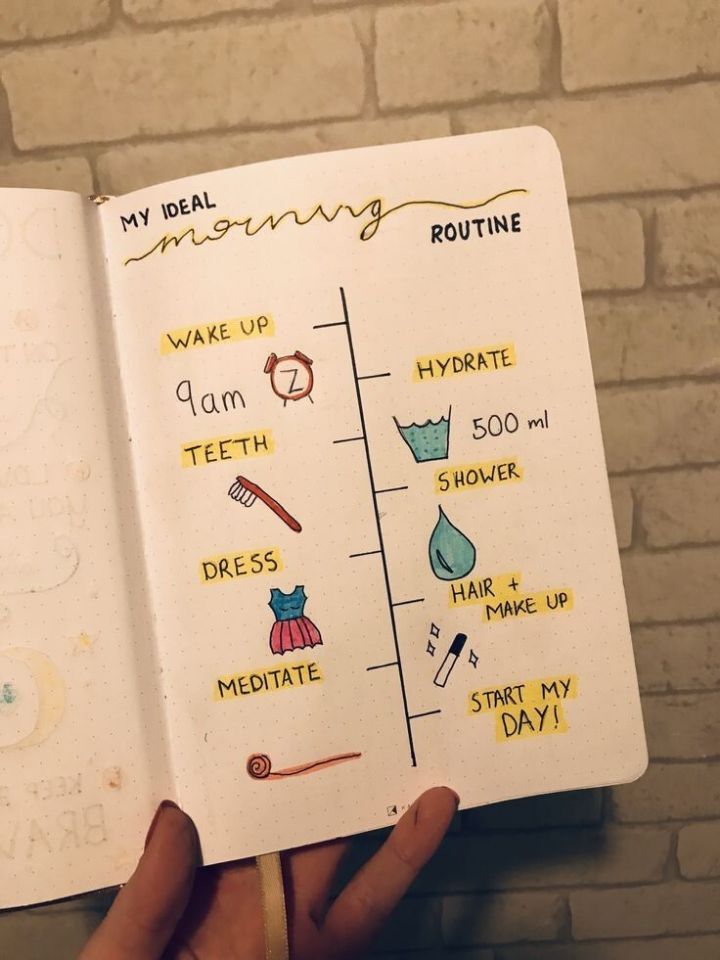 MY IDEAL
morning
ROUTINE
WAKE UP
9am
Z
HYDRATE
500 ml
TEETH
SHOWER
DRESS
HAIR +
MAKE UP
MEDITATE
START MY
DAY!